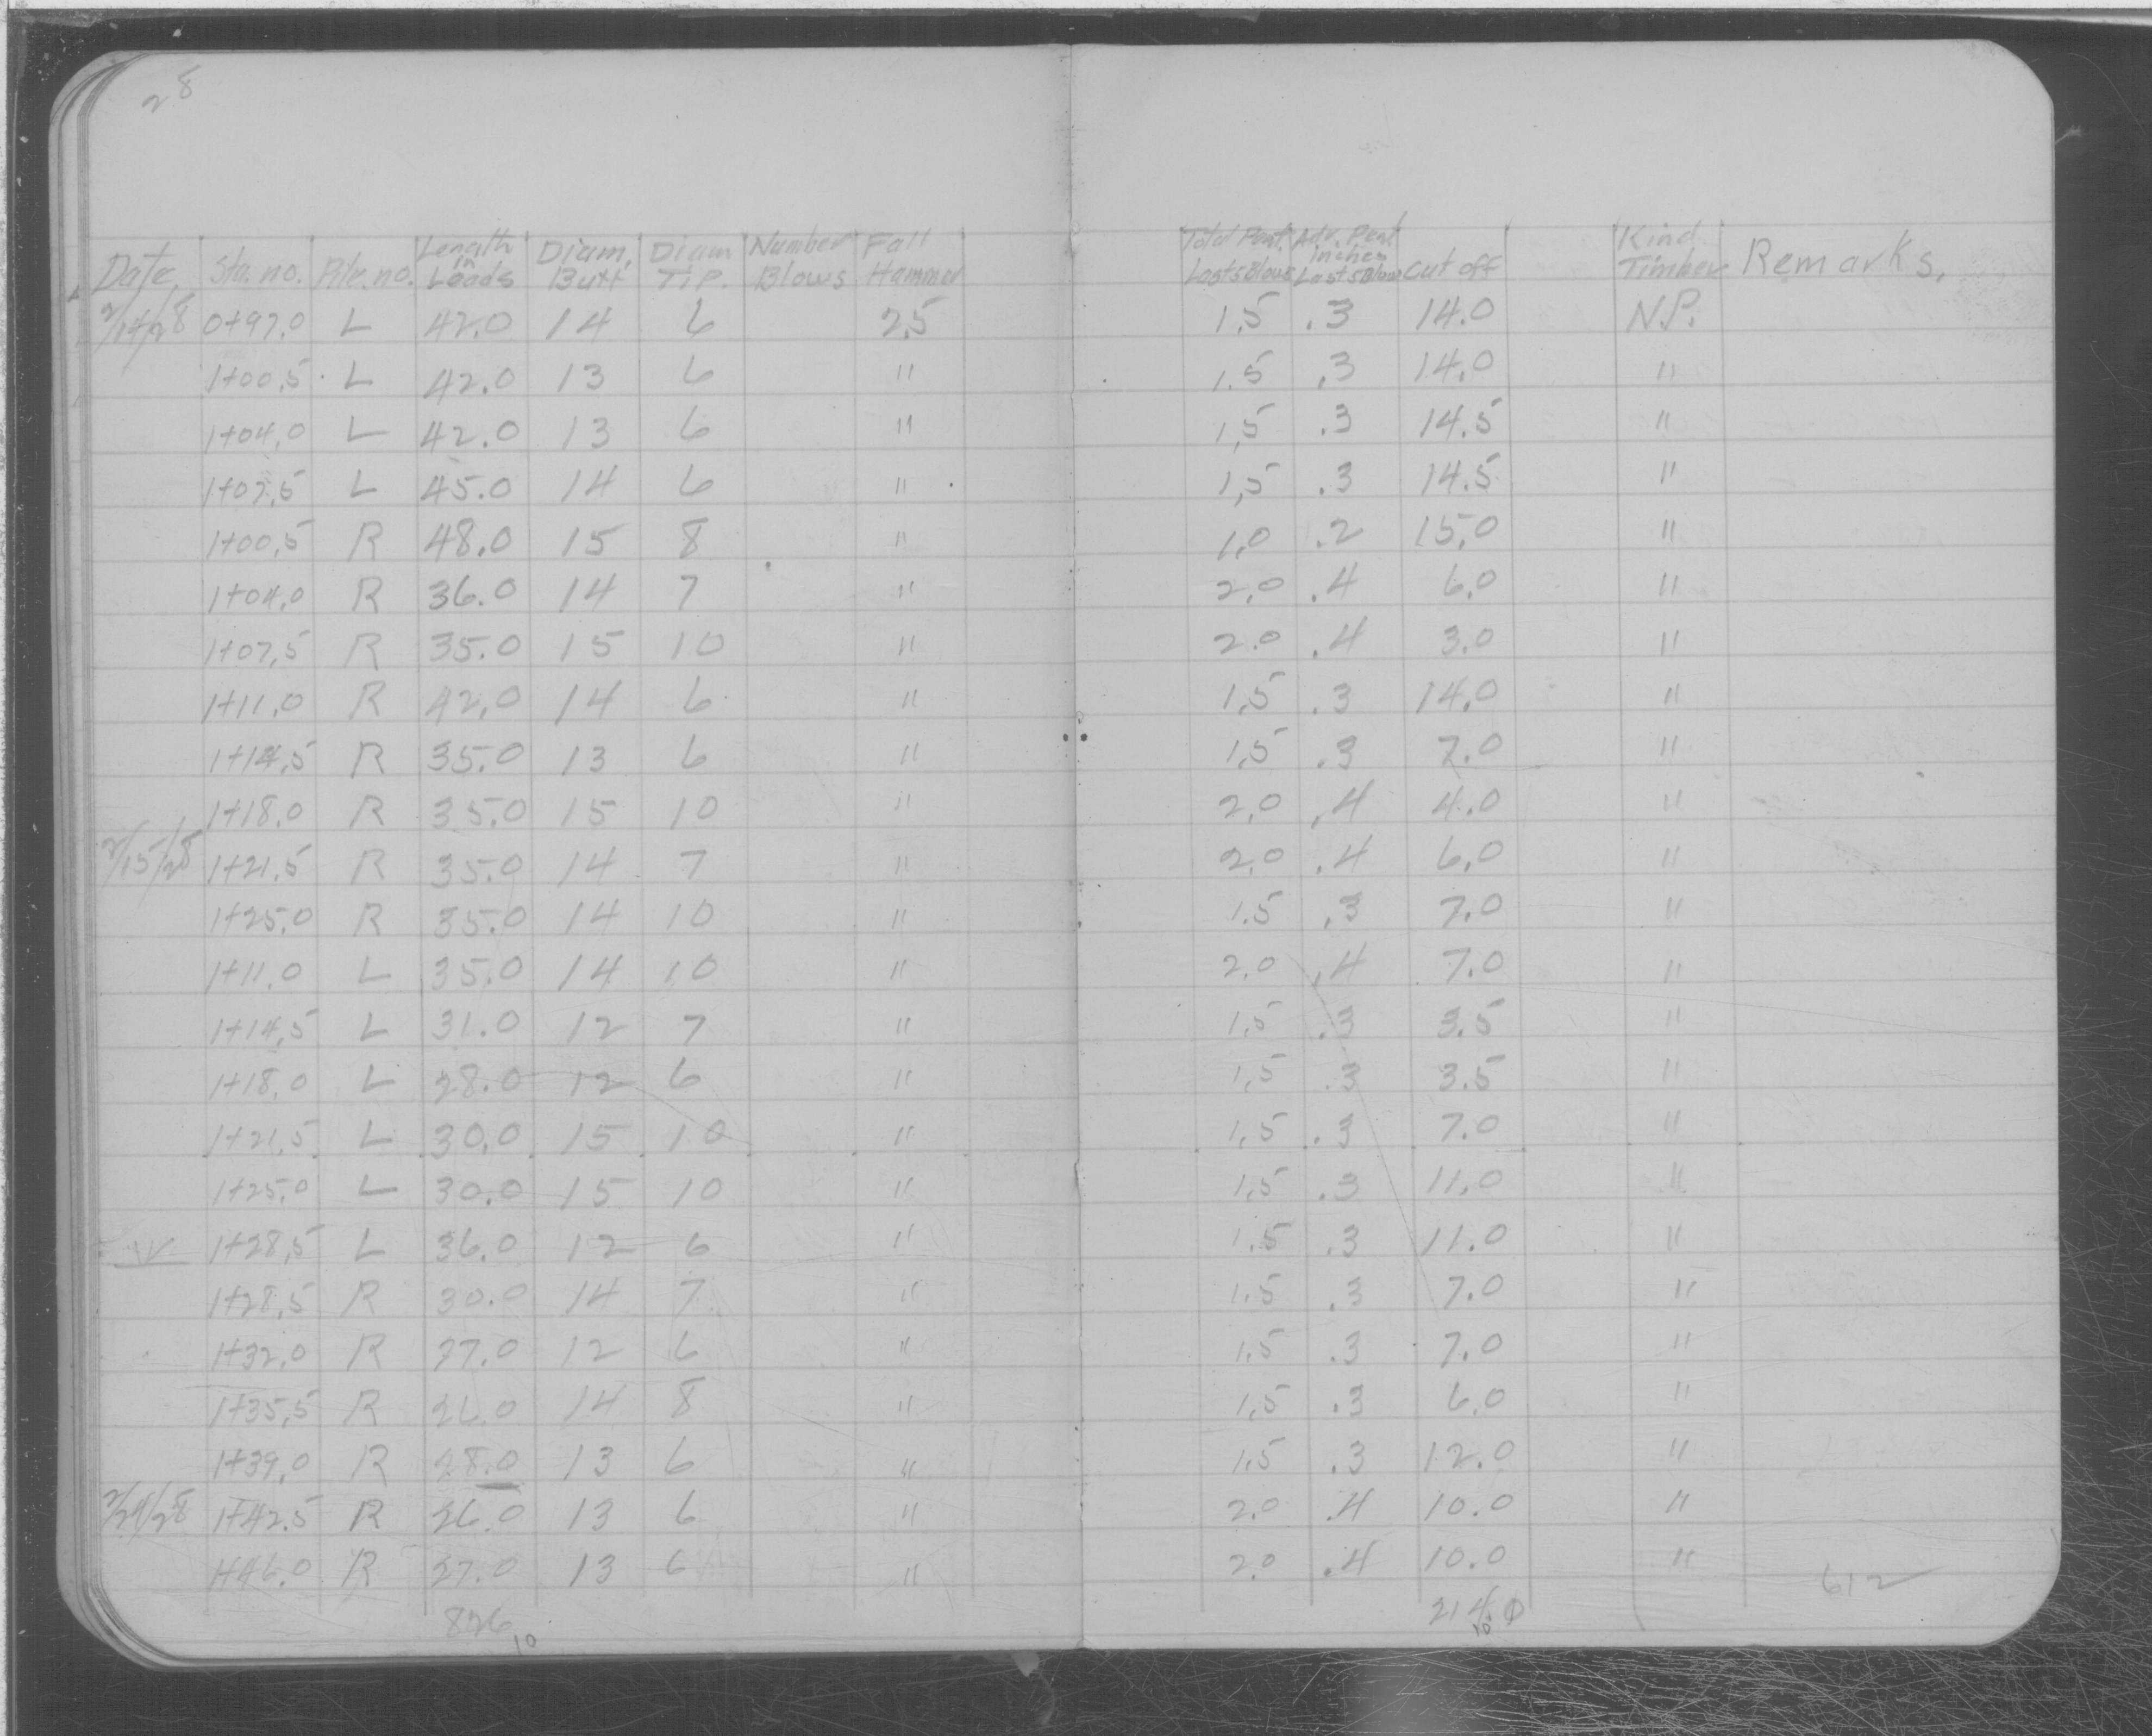 28
Date. Sta. no. Pile. no. Length in Leads Diam. Butt Diam TIP. Number Blows Fall Hammer Total Pent. Last 5 Blows Adv. Pent inches Last 5 Blows cut off Kind Timber Remarks.
2/14/28 0+97.0 L 42.0 14 6 25 1.5 .3 14.0 N.P.
1+00.5 L 42.0 13 6 " 1.5 .3 14.0 "
1+04.0 L 42.0 13 6 " 1.5 .3 14.5 "
1+07.5 L 45.0 14 6 " 1.5 .3 14.5 "
1+00.5 R 48.0 15 8 " 1.0 .2 15.0 "
1+04.0 R 36.0 14 7 " 2.0 .4 6.0 "
1+07.5 R 35.0 15 10 " 2.0 .4 3.0 "
1+11.0 R 42.0 14 6 " 1.5 .3 14.0 "
1+14.5 R 35.0 13 6 " 1.5 .3 7.0 "
1+18.0 R 35.0 15 10 " 2.0 .4 4.0 "
2/15/28 1+21.5 R 35.0 14 7 " 2.0 .4 6.0 "
1+25.0 R 35.0 14 10 " 1.5 .3 7.0 "
1+11.0 L 35.0 14 10 " 2.0 .4 7.0 "
1+14.5 L 31.0 12 7 " 1.5 .3 3.5 "
1+18.0 L 28.0 12 6 " 1.5 .3 3.5 "
1+21.5 L 30.0 15 10 " 1.5 .3 7.0 "
1+25.0 L 30.0 15 10 " 1.5 .3 11.0 "
1+28.5 L 36.0 12 6 " 1.5 .3 11.0 "
1+28.5 R 30.0 14 7 " 1.5 .3 7.0 "
1+32.0 R 27.0 12 6 " 1.5 .3 7.0 "
1+35.5 R 26.0 14 8 " 1.5 .3 6.0 "
1+39.0 R 28.0 13 6 " 1.5 .3 12.0 "
2/24/28 1+42.5 R 26.0 13 6 " 2.0 .4 10.0 "
1+46.0 R 27.0 13 6 " 2.0 .4 10.0 "
826 10 214.0 612